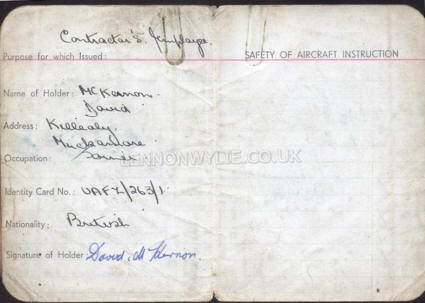 Contractor's Employee
Purpose for which Issued:
Name of Holder: McKernon
David
Address: Killealy,
Muckamore
Occupation:
Identity Card No.: UAFZ/263/1
Nationality: British
Signature of Holder David. McKernon.
SAFETY OF AIRCRAFT INSTRUCTION
LENNONWYLIE.CO.UK